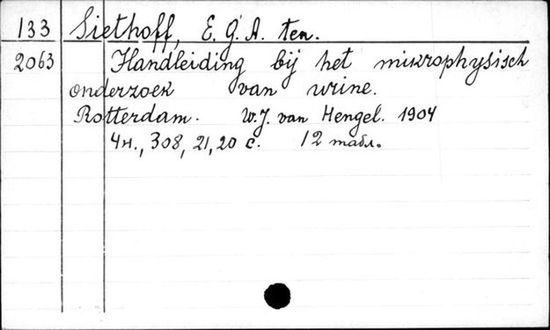 133 Siethoff, E. G. A. ten.
2063 Handleiding bij het mikrophysisch
onderzoek van urine.
Rotterdam. W. J. van Hengel. 1904
4н., 308, 21, 20 с. 12 табл.